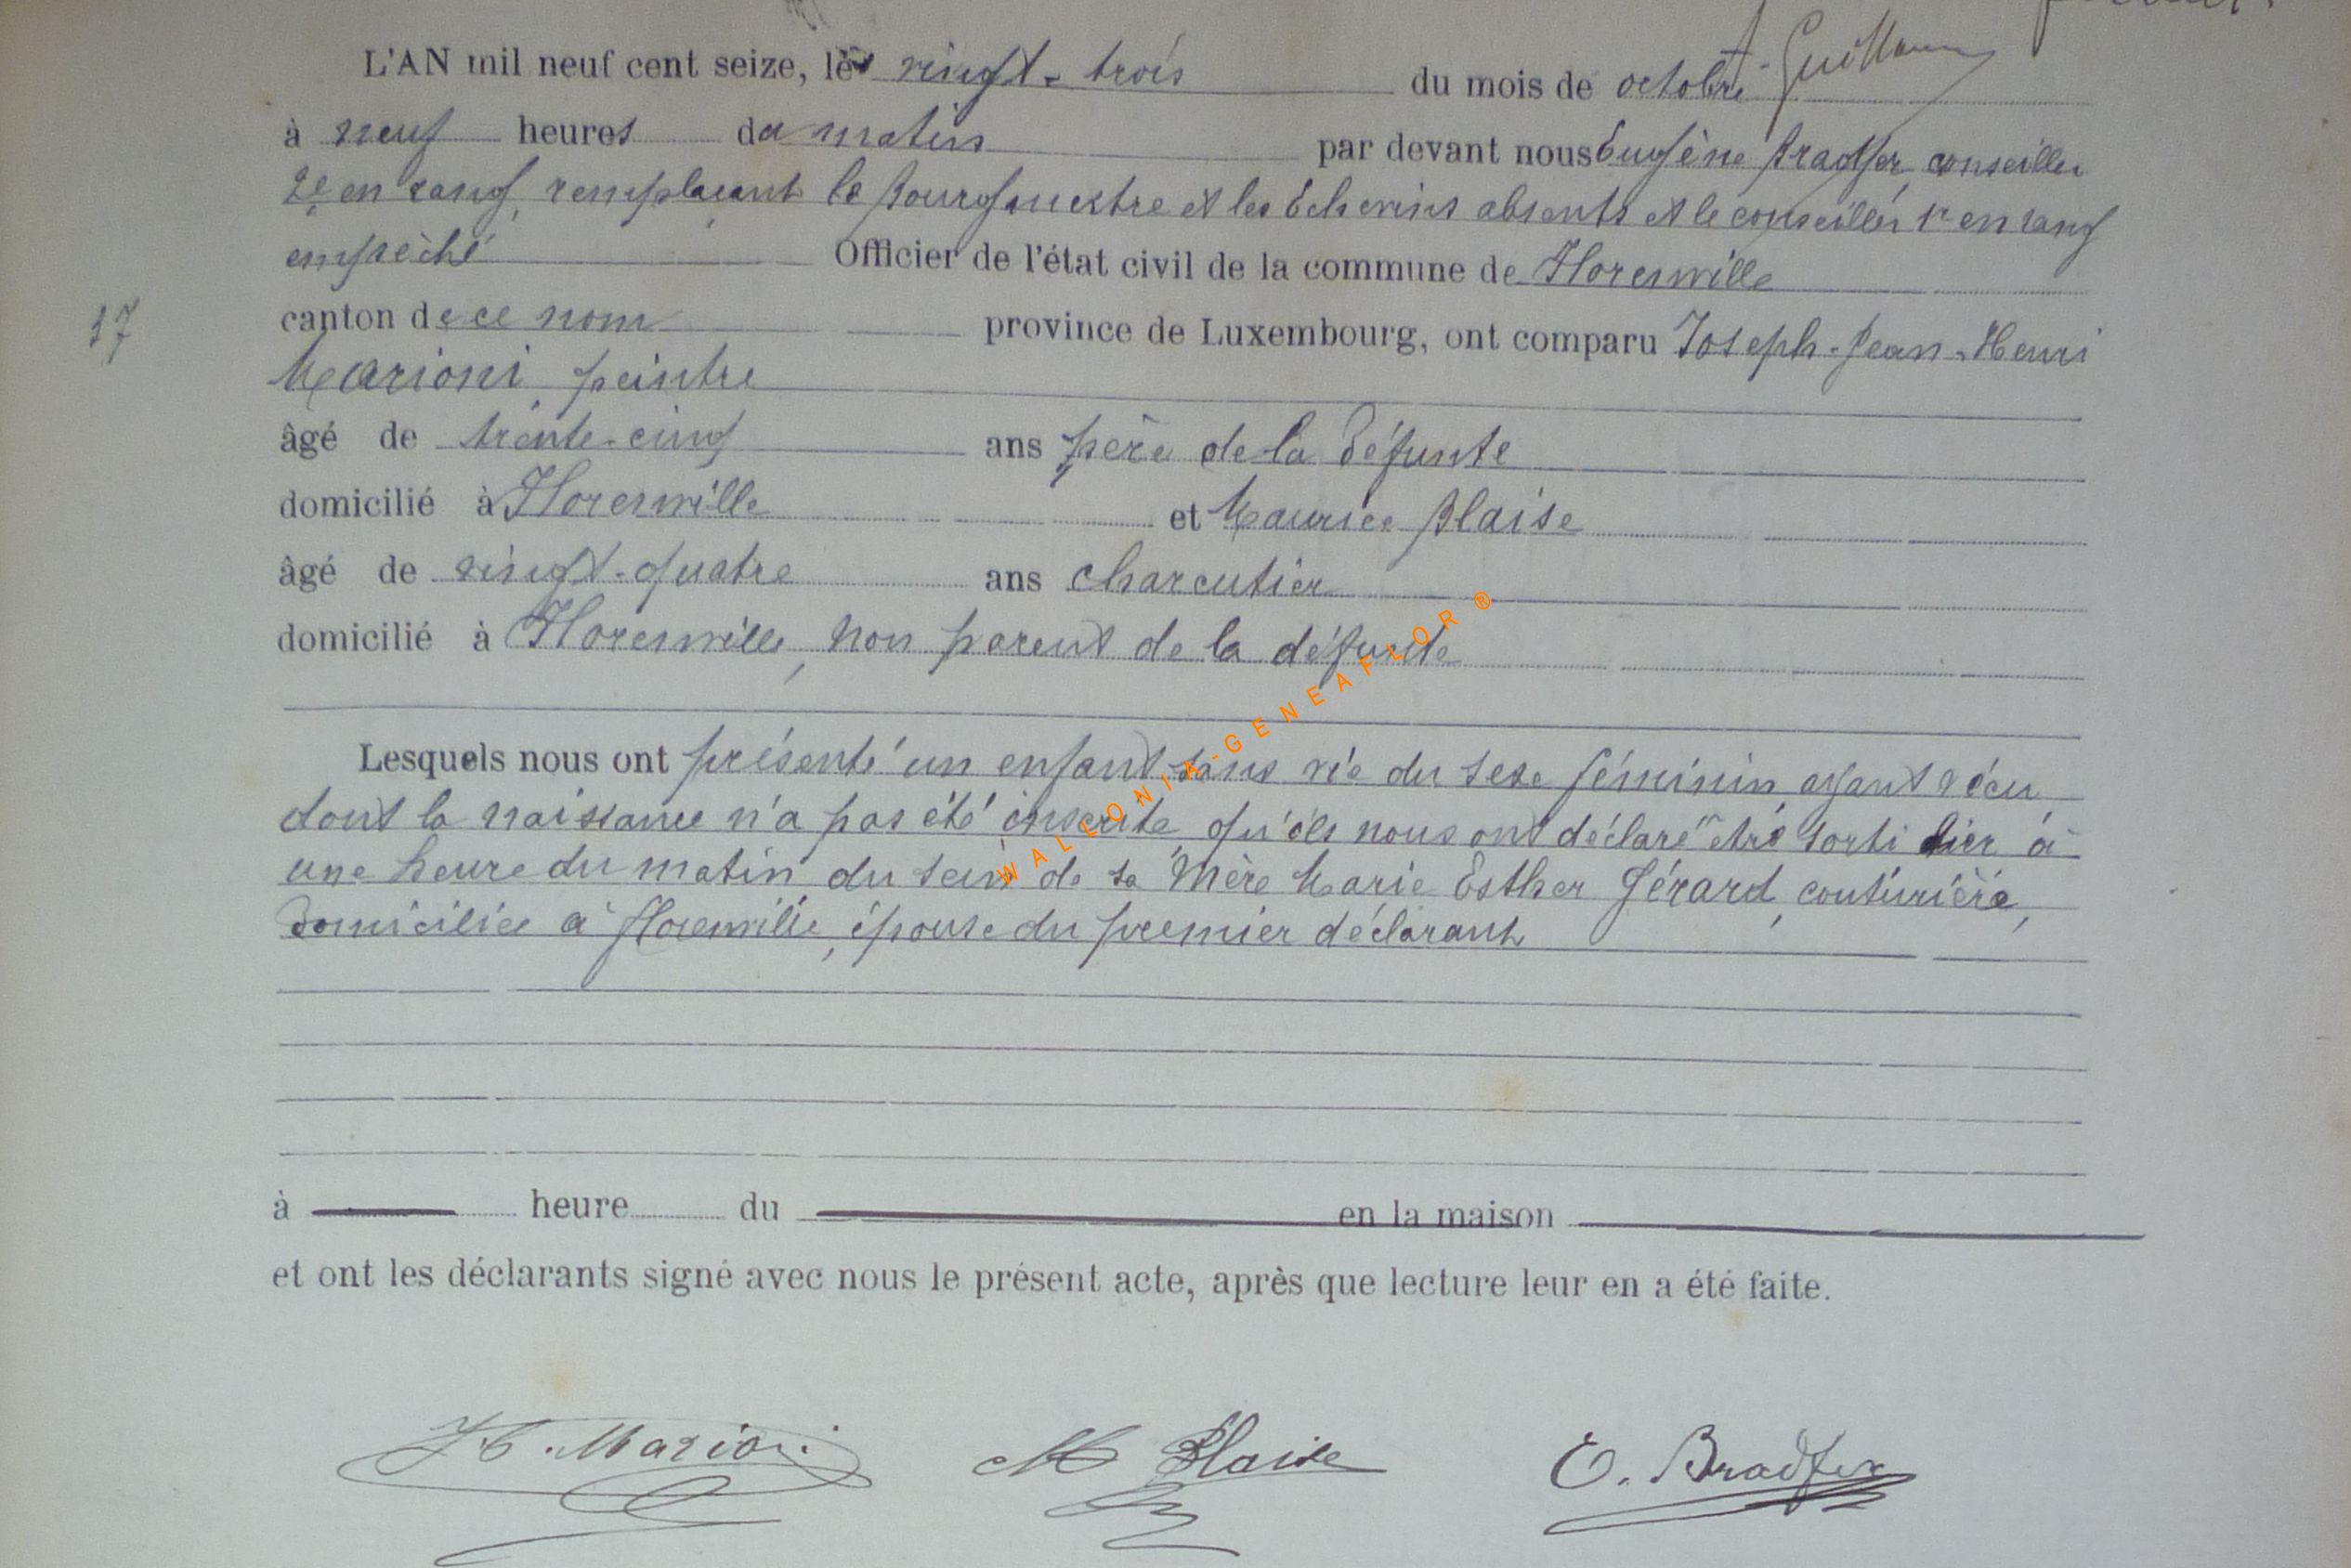 L'AN mil neuf cent seize, le vingt-trois du mois de octobre Guillaume
à neuf heures du matin par devant nous Eugène Bradfer, conseiller
2e en rang, remplaçant le Bourgmestre et les Echevins absents et le conseiller 1r en rang
empêché Officier de l'état civil de la commune de Florenville
17
canton de ce nom province de Luxembourg, ont comparu Joseph-Jean-Henri
Marioni, peintre
âgé de trente-cinq ans père de la défunte
domicilié à Florenville et Maurice Blaise
âgé de vingt-quatre ans charcutier
domicilié à Florenville, non parent de la défunte
Lesquels nous ont présenté un enfant sans vie du sexe féminin, ayant vécu
dont la naissance n'a pas été inscrite, qu'ils nous ont déclaré être sorti hier à
une heure du matin du sein de sa mère Marie Esther Gérard, couturière,
domiciliée à Florenville, épouse du premier déclarant
à heure du en la maison
et ont les déclarants signé avec nous le présent acte, après que lecture leur en a été faite.
Marioni M Blaise E. Bradfer
WALLONIA-GENEAFLOR ®